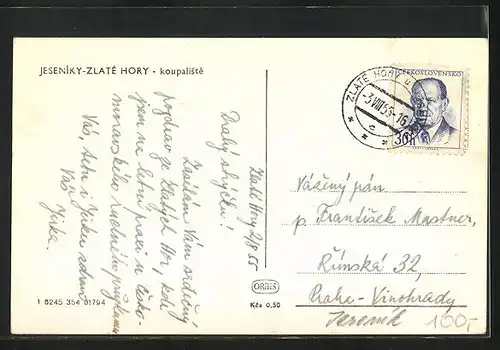 JESENÍKY-ZLATÉ HORY - koupaliště
Zlaté Hory 2/8 55
Drahý strýčku!
Zasílám Vám srdečný
pozdrav ze Zlatých Hor, kde
jsem na letní praxi
Vás, tetu i Jirku zdraví
Váš Jirka.
1 6245 354 61794
ORBIS
Kčs 0,50
ZLATÉ HORY
-3.VIII.55-16
C
ČESKOSLOVENSKO
30h
Vážený pán
p. František Mastner,
Římská 32,
Praha - Vinohrady
Jeseník
100,-